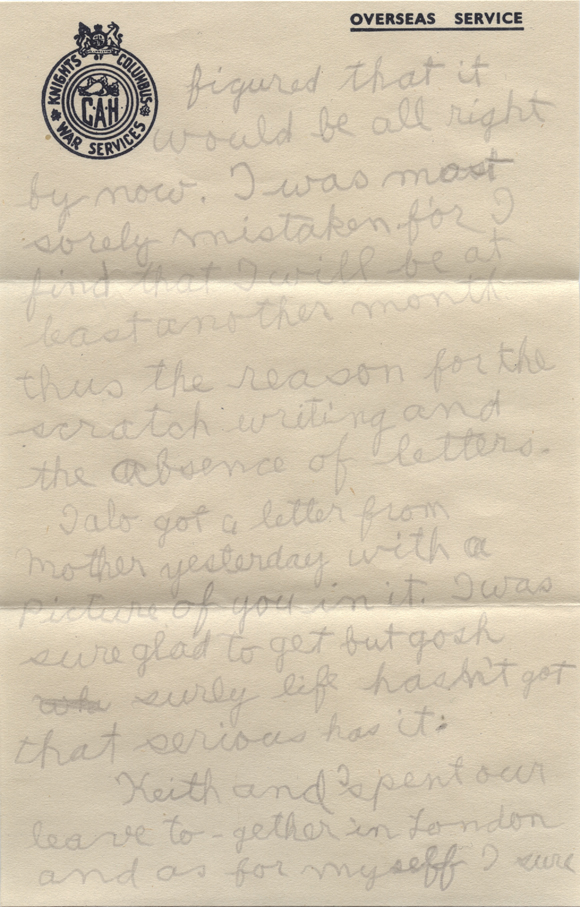 OVERSEAS SERVICE
KNIGHTS OF COLUMBUS
C·A·H
WAR SERVICES
figured that it
would be all right
by now. I was most
sorely mistaken for I
find that I will be at
least another month
thus the reason for the
scratch writing and
the absence of letters.
I alo got a letter from
Mother yesterday with a
Picture of you in it. I was
sure glad to get but gosh
surly life hasn't got
that serious has it:
Keith and I spent our
leave to-gether in London
and as for myself I sure